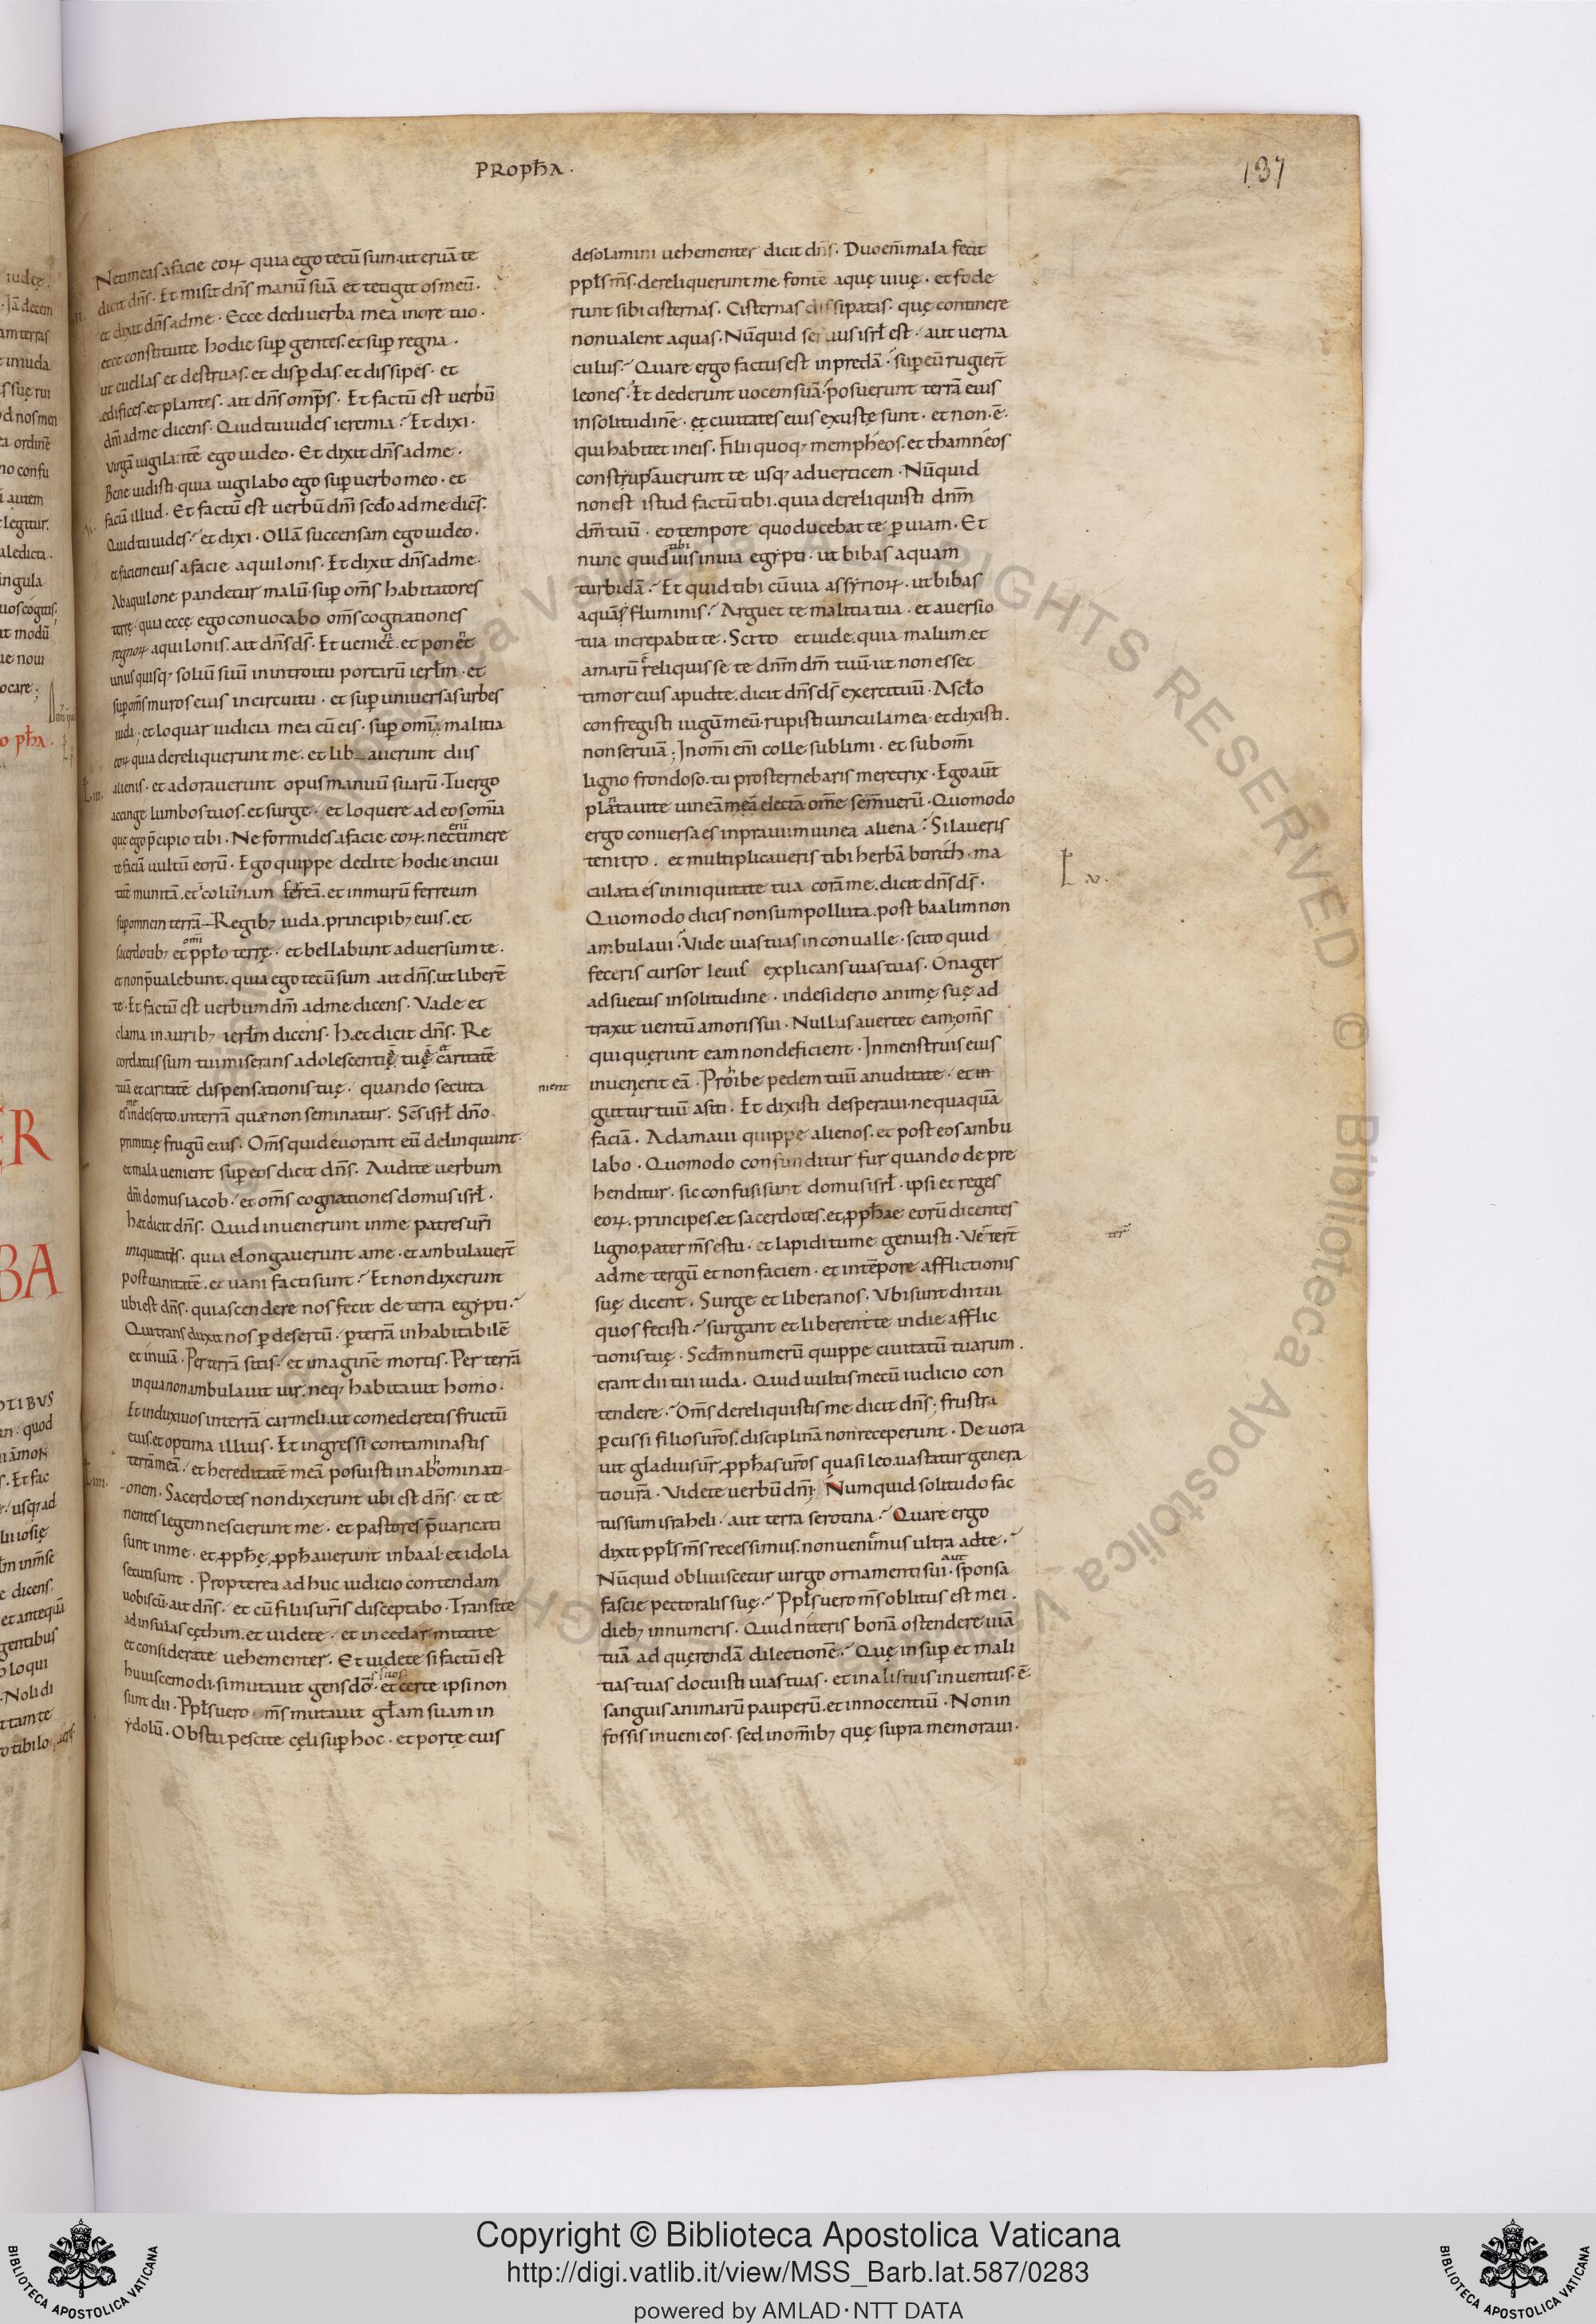 PROPħA·
137
Ne timeas a facie eoꝝ quia ego tecū sum· ut eruā te
dicit dn̄s· Et misit dn̄s manū suā et tetigit os meū·
et dixit dn̄s ad me· Ecce dedi verba mea in ore tuo·
ecce constitui te hodie sup̄ gentes· et sup̄ regna·
ut euellas et destruas· et disp̄das· et dissipes· et
edifices· et plantes· ait dn̄s omp̄s· Et factū est verbū
dn̄i ad me dicens· Quid tu uides ieremia? Et dixi·
Virgā uigilantē ego uideo· Et dixit dn̄s ad me·
Bene uidisti quia uigilabo ego sup̄ verbo meo· et
faciā illud· Et factū est verbū dn̄i scd̄o ad me dicēs·
Quid tu uides? et dixi· Ollā succensam ego uideo·
et faciem eius a facie aquilonis· Et dixit dn̄s ad me·
Ab aquilone pandetur malū· sup̄ om̄s habitatores
terrę· quia eccę ego conuocabo om̄s cognationes
regnoꝝ aquilonis· ait dn̄s ds̄· Et uenient· et ponent
unusquisq; soliū suū in introitu portarū ierłm· et
sup̄ om̄s muros eius in circuitu· et sup̄ universas urbes
iuda· et loquar iudicia mea cū eis· sup̄ omīa malitia
eoꝝ quia dereliquerunt me· et lib averunt diis
alienis· et adoraverunt opus manuū suarū· Tu ergo
accinge lumbos tuos· et surge· et loquere ad eos omīa
que ego p̄cipio tibi· Ne formides a facie eoꝝ· nec timere
enī
te faciā uultū eorū· Ego quippe dedi te hodie in ciui
tatē munitā· et colūnam ferreā· et in murū ferreum
sup̄ omnem terrā Regib; iuda· principib; eius· et
sacerdotib; et pp̄ło terrę· et bellabunt adversum te·
omī
et non p̄ualebunt· quia ego tecū sum ait dn̄s· ut liberē
te· Et factū est verbum dn̄i ad me dicens· Vade et
clama in aurib; ierłm dicens· Hæc dicit dn̄s· Re
cordatus sum tui miserans adolescentię tuę caritatē
tuā et caritatē dispensationis tuę· quando secuta
es me in deserto· in terrā quæ non seminatur· Scs̄ isrł dn̄o·
primitię frugū eius· Om̄s qui deuorant eū delinquunt·
et mala uenient sup̄ eos dicit dn̄s· Audite verbum
dn̄i domus iacob· et om̄s cognationes domus isrł·
Hæc dicit dn̄s· Quid invenerunt in me patres ur̄i
iniquitatis· quia elongaverunt a me· et ambulaver̄t
post uanitatē· et uani facti sunt? Et non dixerunt
ubi est dn̄s· qui ascendere nos fecit de terra egypti?
Qui transduxit nos p̄ desertū· p̄ terrā inhabitabilē
et inuiā· Per terrā sitis· et imaginē mortis· Per terrā
in qua non ambulauit uir· neq; habitauit homo·
Et induxi uos in terrā carmeli· ut comederetis fructū
eius· et optima illius· Et ingressi contaminastis
terrā meā· et hereditatē meā posuisti in abhominati
onem· Sacerdotes non dixerunt ubi est dn̄s· et te
nentes legem nescierunt me· et pastores p̄uaricati
sunt in me· et p̱pħę p̱pħaverunt in baal· et idola
secuti sunt· Propterea adhuc iudicio contendam
uobiscū· ait dn̄s· et cū filiis ur̄is disceptabo· Transite
ad insulas cęthim· et uidete· et in cedar mittite
et considerate vehementer· Et uidete si factū est
huiuscemodi· si mutauit gens dō suos· et certe ipsi non
sunt dii· Ppłs uero m̄s mutauit głam suam in
ydolū· Obstupescite cęli sup̄ hoc· et portę eius
desolamini uehementer dicit dn̄s· Duo enī mala fecit
ppłs m̄s· dereliquerunt me fontē aquę uiuę· et fode
runt sibi cisternas· Cisternas dissipatas· quę continere
non ualent aquas· Nūquid seruus isrł est· aut uerna
culus? Quare ergo factus est in predā· sup̄ eū rugier̄t
leones· Et dederunt uocem suā· posuerunt terrā eius
in solitudinē· et ciuitates eius exustę sunt· et non· ē·
qui habitet in eis· Filii quoq; mempheos· et thamneos
constupraverunt te usq; ad verticem· Nūquid
non est istud factū tibi· quia dereliquisti dnm̄
dm̄ tuū· eo tempore quo ducebat te p̄ uiam· Et
nunc quid tibi uis in uia egypti· ut bibas aquam
turbidā? Et quid tibi cū uia assyrioꝝ· ut bibas
aquā fluminis? Arguet te malitia tua· et aversio
tua increpabit te· Scito et uide· quia malum· et
amarū reliquisse te dnm̄ dm̄ tuū· ut non esset
timor eius apud te· dicit dn̄s ds̄ exercituū· A scło
confregisti iugū meū· rupisti uincula mea· et dixisti·
non seruiā; In omī enī colle sublimi· et sub omī
ligno frondoso· tu prosternebaris meretrix· Ego aūt
plātaui te uineā meā electā om̄e sem̄ uerū· Quomodo
ergo conversa es in prauum uinea aliena? Si laueris
te nitro· et multiplicaveris tibi herbā borith· ma
culata es in iniquitate tua corā me· dicit dn̄s ds̄·
L v·
Quomodo dicis non sum polluta· post baalim non
ambulaui· Vide uias tuas in conualle· scito quid
feceris cursor leuis explicans uias tuas· Onager
adsuetus in solitudine· in desiderio animę suę ad
traxit uentū amoris sui· Nullus avertet eam; om̄s
qui quęrunt eam non deficient· In menstruis eius
nient
invenerit eā· Prohibe pedem tuū a nuditate· et
guttur tuū a siti· Et dixisti desperaui· nequaquā
faciā· Adamaui quippe alienos· et post eos ambu
labo· Quomodo confunditur fur quando depre
henditur· sic confusi sunt domus isrł· ipsi et reges
eoꝝ· principes· et sacerdotes· et p̱pħae eorū dicentes
ligno· pater m̄s es tu· et lapidi tu me genuisti· Ver̄t
ter̄
ad me tergū et non faciem· et in tēpore afflictionis
suę dicent· Surge et libera nos· Vbi sunt dii tui
quos fecisti? surgant et liberent te in die afflic
tionis tuę· Scdm̄ numerū quippe ciuitatū tuarum·
erant dii tui iuda· Quid uultis mecū iudicio con
tendere? Om̄s dereliquistis me dicit dn̄s; frustra
p̄cussi filios ur̄os· disciplinā non receperunt· Deuora
uit gladius ur̄ p̱pħas ur̄os quasi leo uastatur genera
tio ur̄a· Videte verbū dn̄i· Numquid solitudo fac
tus sum israheli· aut terra serotina? Quare ergo
dixit ppłs m̄s recessimus· non ueniemus ultra ad te?
Nūquid obliuiscetur uirgo ornamenti sui· aut sponsa
fascie pectoralis suę? Ppłs uero m̄s oblitus est mei·
dieb; innumeris· Quid niteris bonā ostendere uiā
tuā ad querendā dilectionē? Quę insup̄ et mali
tias tuas docuisti uias tuas· et in alis tuis inventus· ē·
sanguis animarū pauperū· et innocentiū· Non in
fossis inveni eos· sed in omīb; quę supra memoraui·
Copyright © Biblioteca Apostolica Vaticana
http://digi.vatlib.it/view/MSS_Barb.lat.587/0283
powered by AMLAD·NTT DATA
BIBLIOTECA APOSTOLICA VATICANA
BIBLIOTECA APOSTOLICA VATICANA